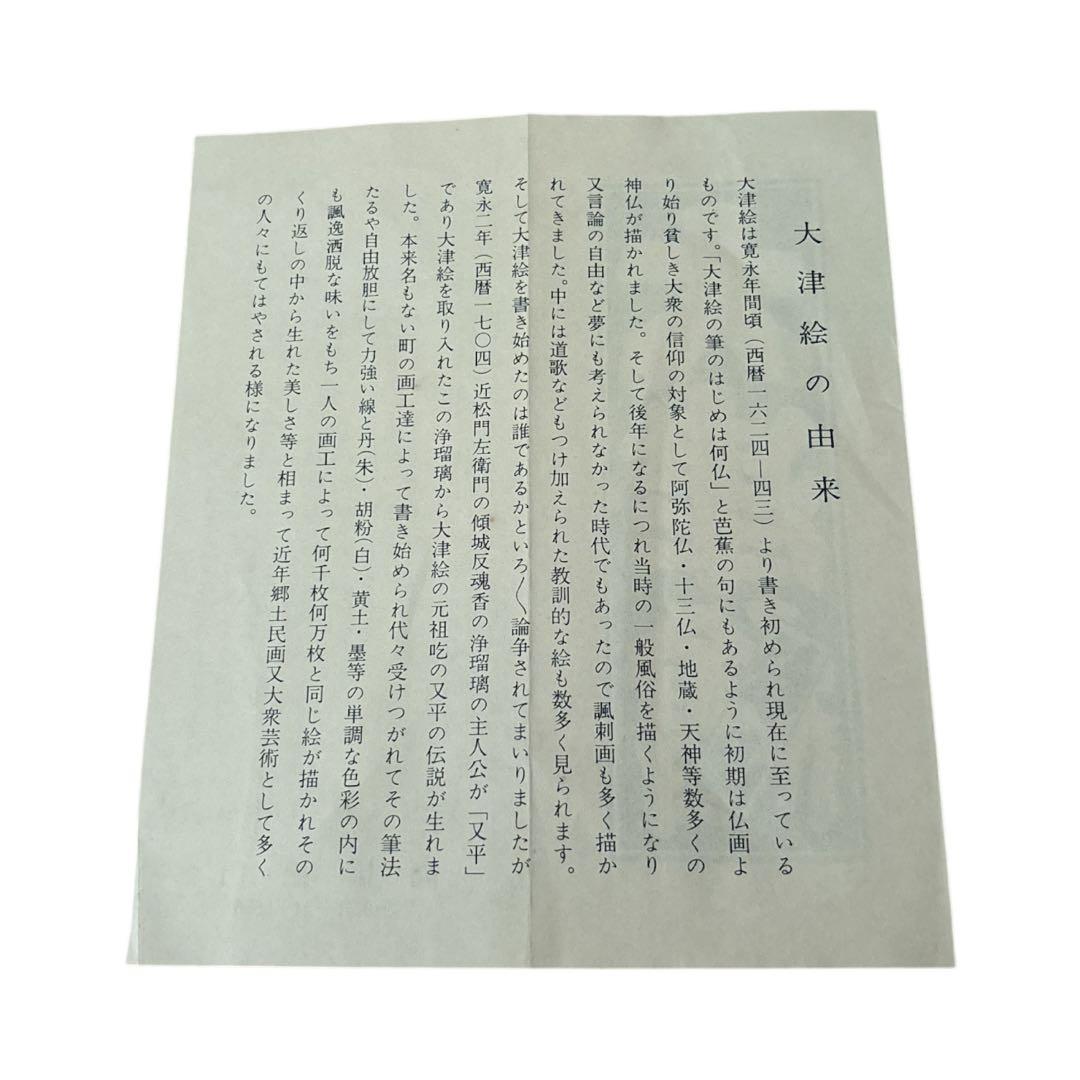 大津絵の由来
大津絵は寛永年間頃（西暦一六二四—四三）より書き初められ現在に至っている
ものです。「大津絵の筆のはじめは何仏」と芭蕉の句にもあるように初期は仏画よ
り始り貧しき大衆の信仰の対象として阿弥陀仏・十三仏・地蔵・天神等数多くの
神仏が描かれました。そして後年になるにつれ当時の一般風俗を描くようになり
又言論の自由など夢にも考えられなかった時代でもあったので諷刺画も多く描か
れてきました。中には道歌などもつけ加えられた教訓的な絵も数多く見られます。
そして大津絵を書き始めたのは誰であるかといろ〳〵論争されてまいりましたが
寛永二年（西暦一七〇四）近松門左衛門の傾城反魂香の浄瑠璃の主人公が「又平」
であり大津絵を取り入れたこの浄瑠璃から大津絵の元祖吃の又平の伝説が生れま
した。本来名もない町の画工達によって書き始められ代々受けつがれてその筆法
たるや自由放胆にして力強い線と丹（朱）・胡粉（白）・黄土・墨等の単調な色彩の内に
も諷逸洒脱な味いをもち一人の画工によって何千枚何万枚と同じ絵が描かれその
くり返しの中から生れた美しさ等と相まって近年郷土民画又大衆芸術として多く
の人々にもてはやされる様になりました。